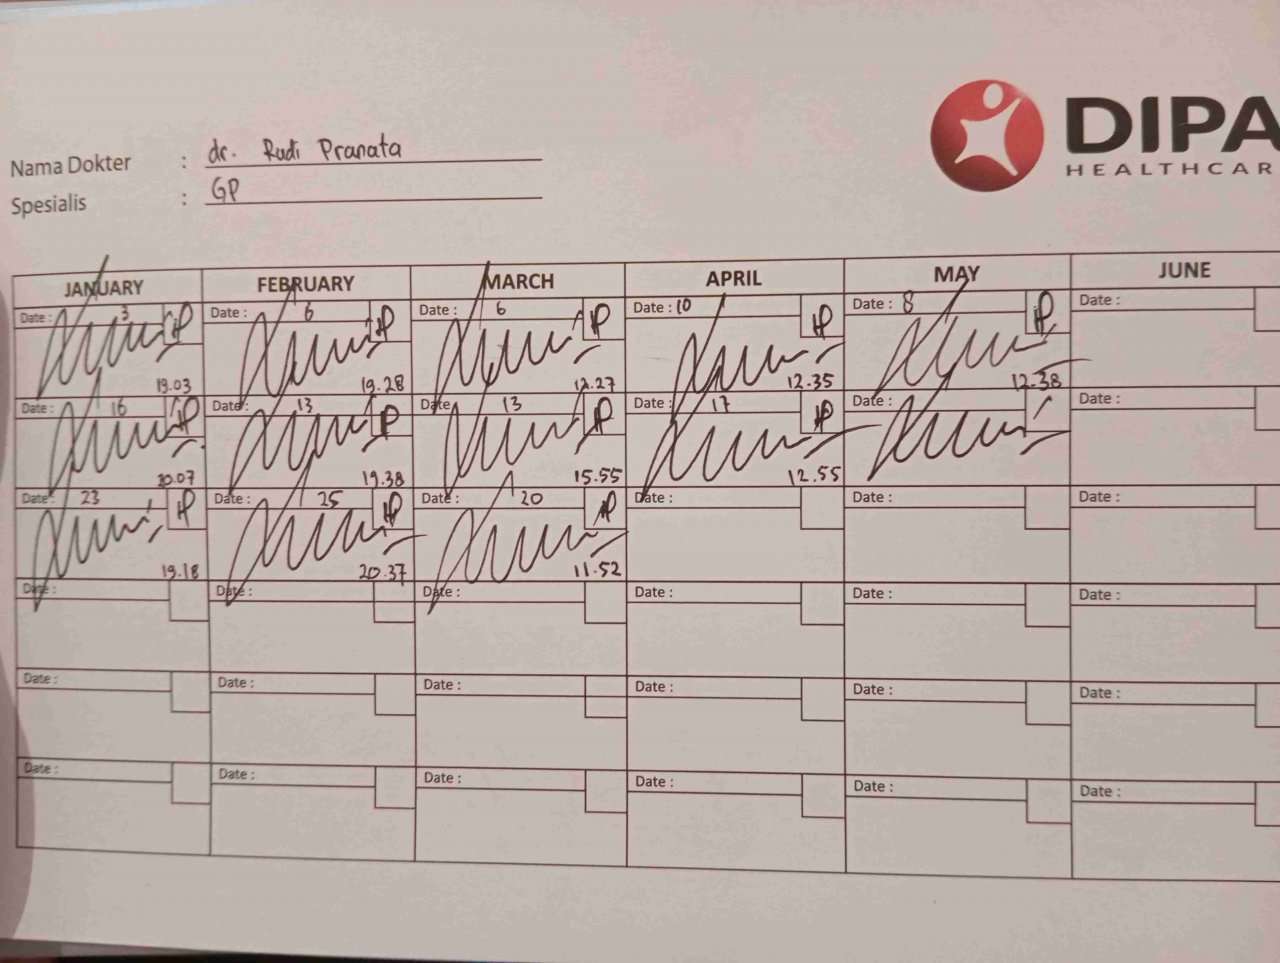 DIPA
HEALTHCAR
Nama Dokter : dr. Rudi Pranata
Spesialis : GP
JANUARY FEBRUARY MARCH APRIL MAY JUNE
Date : 3 Date : 6 Date : 6 Date : 10 Date : 8 Date :
19.03 19.28 12.27 12.35 12.38
Date : 16 Date : 13 Date : 13 Date : 17 Date : Date :
20.07 19.38 15.55 12.55
Date : 23 Date : 25 Date : 20 Date : Date : Date :
19.18 20.37 11.52
Date : Date : Date : Date : Date : Date :
Date : Date : Date : Date : Date : Date :
Date : Date : Date : Date : Date : Date :